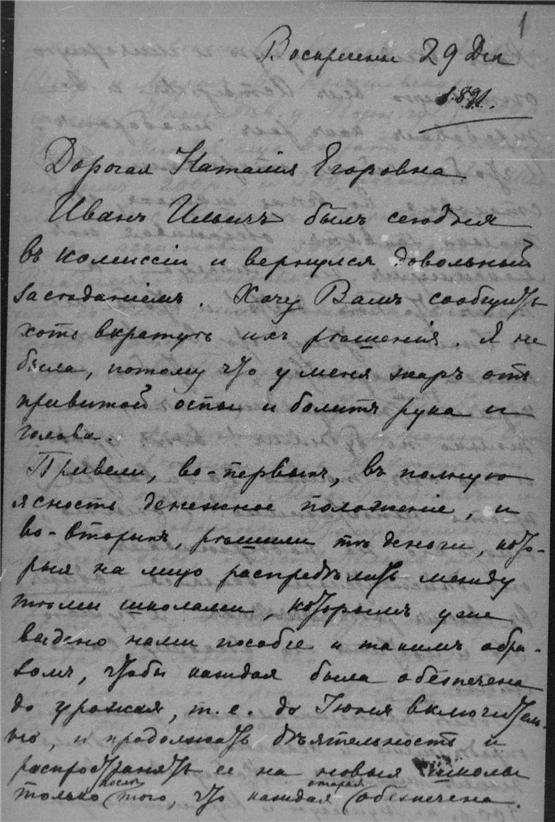 1
Воскресенье 29 Дек
1891.
Дорогая Наталія Егоровна
Иванъ Ильичъ былъ сегодня
въ комиссіи и вернулся довольный
засѣданіемъ. Хочу Вамъ сообщить
хоть вкратцѣ ихъ рѣшенія. Я не
была, потому что у меня жаръ отъ
привитой оспы и болитъ рука и
голова.
Привели, во-первыхъ, въ полную
ясность денежное положеніе, и
во-вторыхъ, рѣшили тѣ деньги, кото-
рыя на лицо распредѣлить между
тѣми школами, которымъ уже
выдано нами пособіе и такимъ обра-
зомъ, чтобы каждая была обезпечена
до урожая, т.е. до Іюня включитель-
но, и продолжать дѣятельность и
распространять ее на новыя школы
только послѣ того, что каждая старая обезпечена.